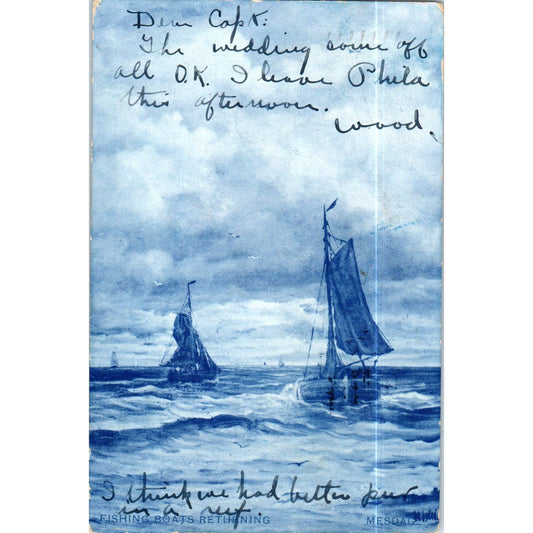 Dear Capt:
The wedding came off
all O.K. I leave Phila
this afternoon.
Wood.
I think we had better put
in a reef.
FISHING BOATS RETURNING MESDAG